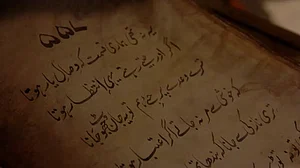 یہ نہ تھی ہماری قسمت کہ وصال یار ہوتا
اگر اور جیتے رہتے یہی انتظار ہوتا
ترے وعدے پر جیے ہم تو یہ جان جھوٹ جانا
کہ خوشی سے مر نہ جاتے اگر اعتبار ہوتا
تری نازکی سے جانا کہ بندھا